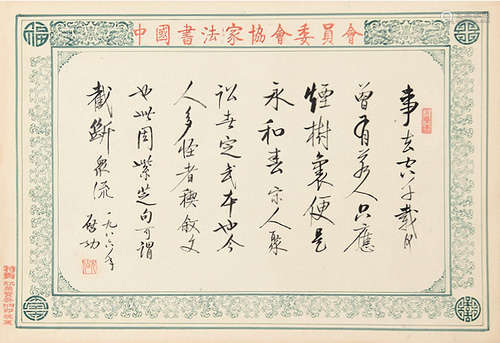 中國書法家協會委員會
事去 千載
曾有若人只應
煙樹裏便是
永和春宋人聚
訟者定武本也今
人多怪者禊敘文
也此周紫芝句可謂
截斷衆流 一九八六年
啟功